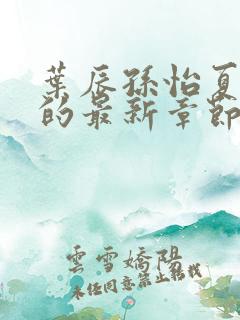 葉辰孫怡夏
的最新章節
雲雪嬌陽
未任同意禁止轉載